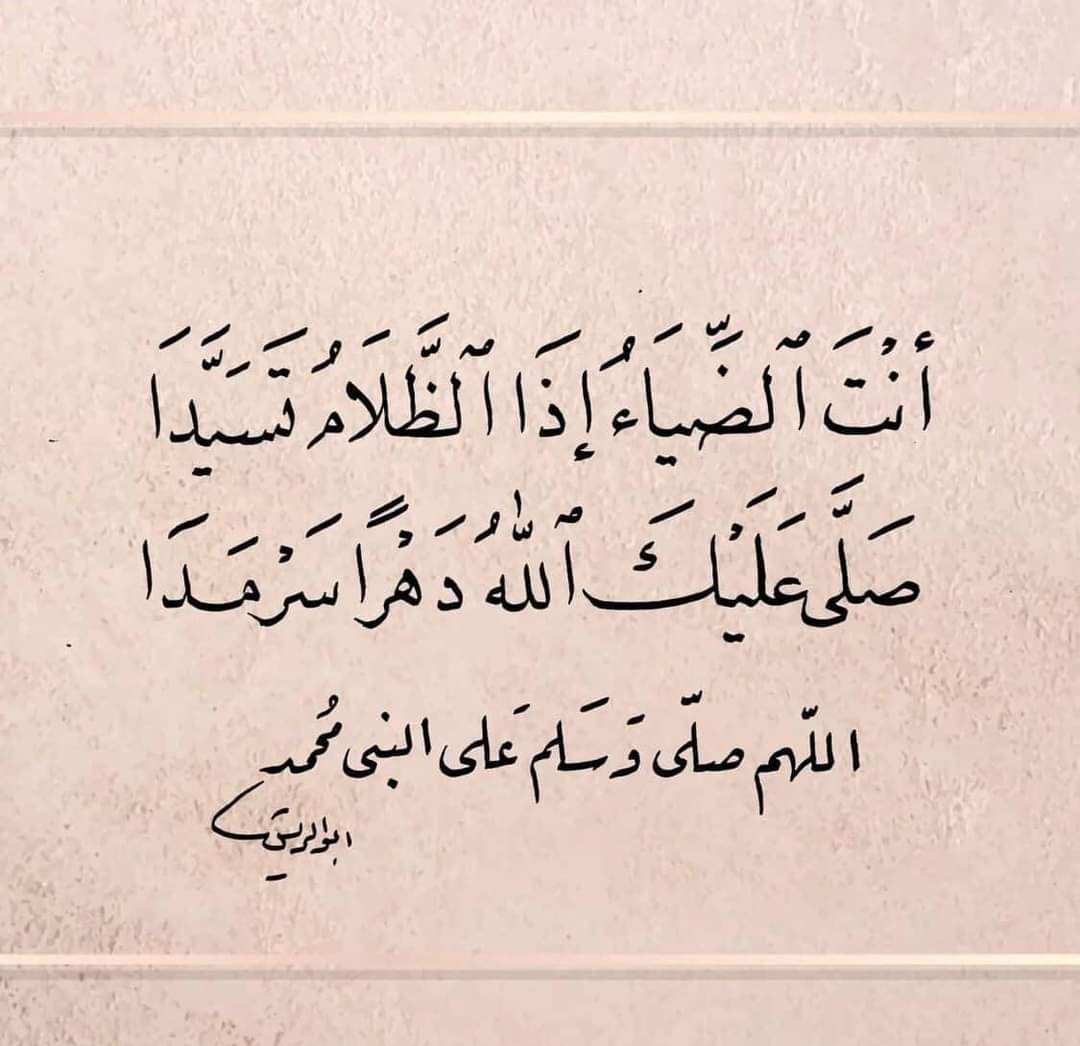 أَنْتَ ٱلضِّيَاءُ إِذَا ٱلظَّلَامُ تَسَيَّدَا
صَلَّى عَلَيْكَ ٱللّٰهُ دَهْرًا سَرْمَدَا
اللّهم صلّى وَسَلم عَلى النبى مُحمد